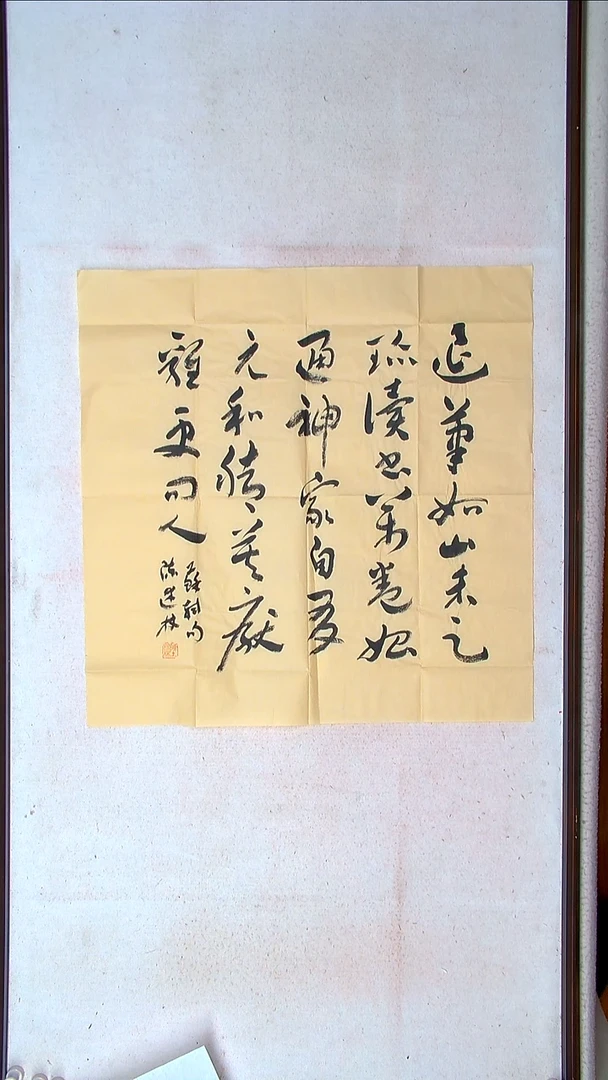 退筆如山未足
珍讀書萬卷始
通神家自有
元和腳莫厭
雞更问人
蘇軾句
陈